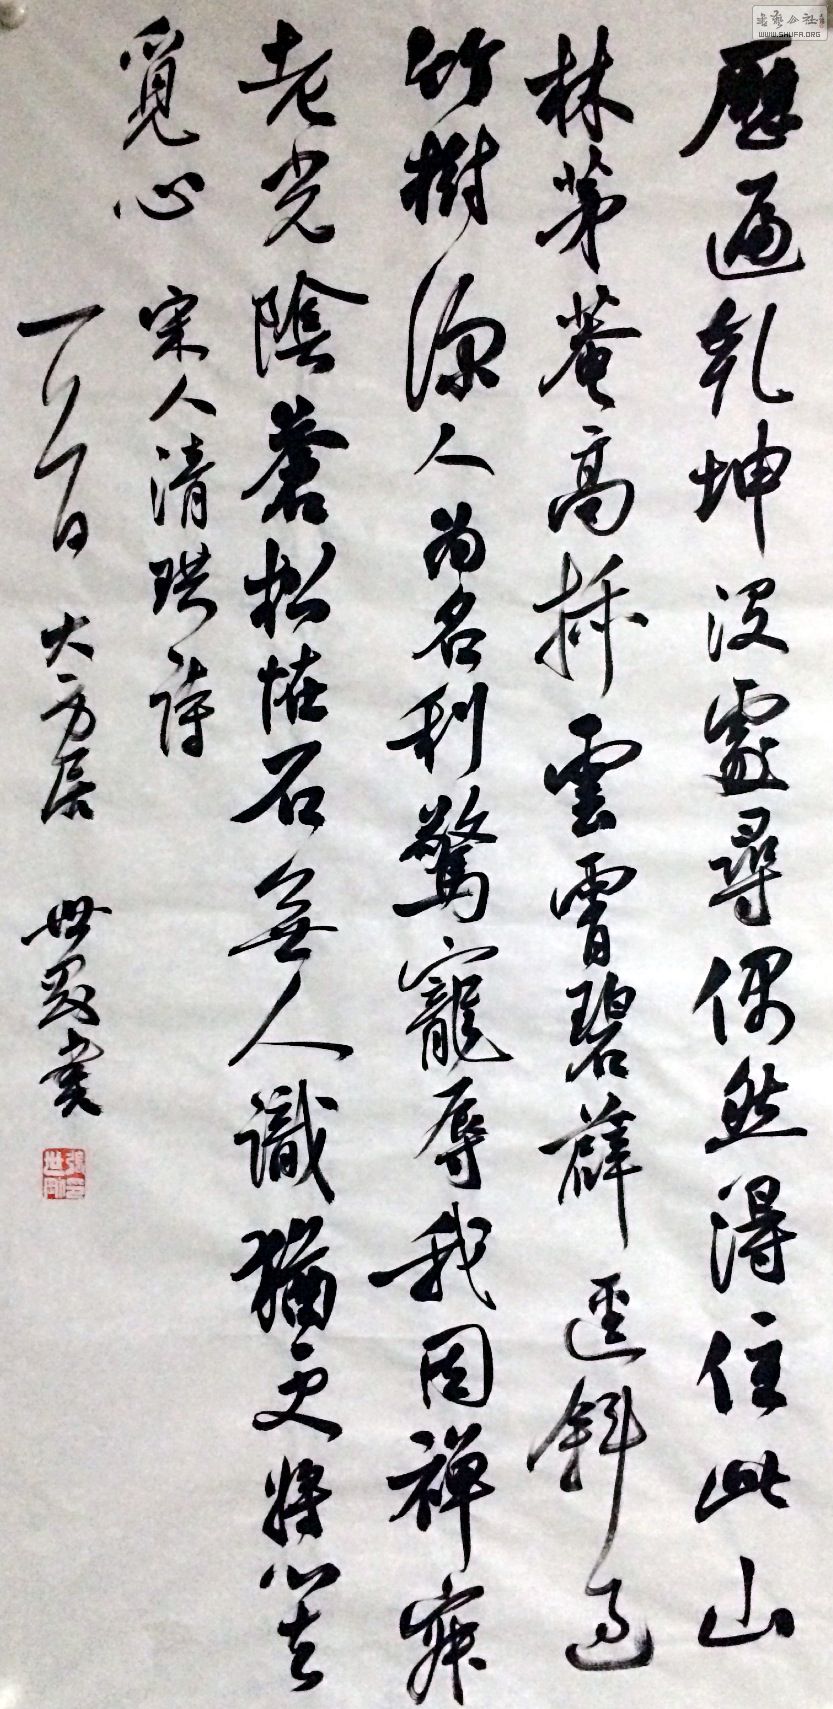 歷遍乾坤没處尋偶然得住此山
林茅菴高插雲霄碧薜逕斜過
竹樹深人為名利驚寵辱我因禪寂
老光陰蒼松怪石無人識猶更將心去
覓心
宋人清珙詩
大方居
張世剛
WWW.SHUFA.ORG